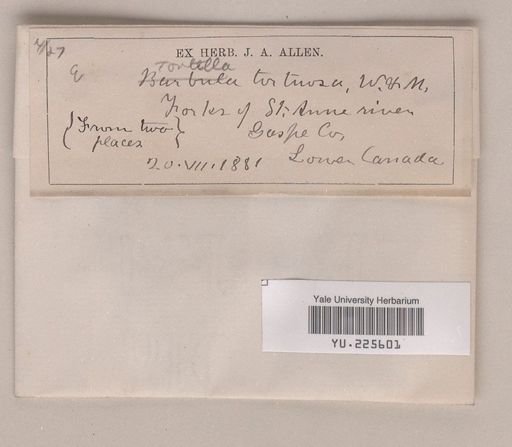 4/27
EX HERB. J. A. ALLEN.
Tortella
Barbula tortuosa, W. & M.
Forks of St. Anne river
{From two places}
Gaspe Co.
Lower Canada
20.VII.1881
Yale University Herbarium
YU.225601